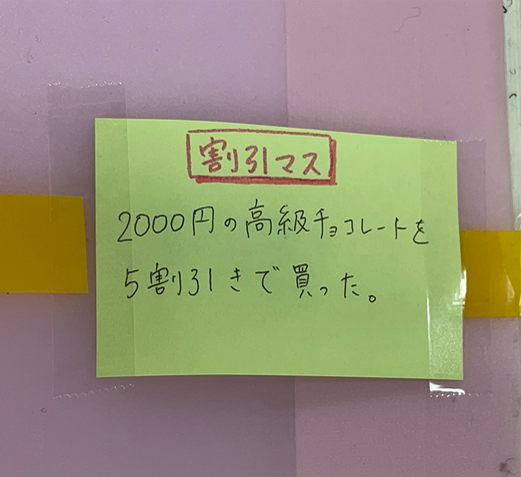 割引マス
2000円の高級チョコレートを
5割引きで買った。